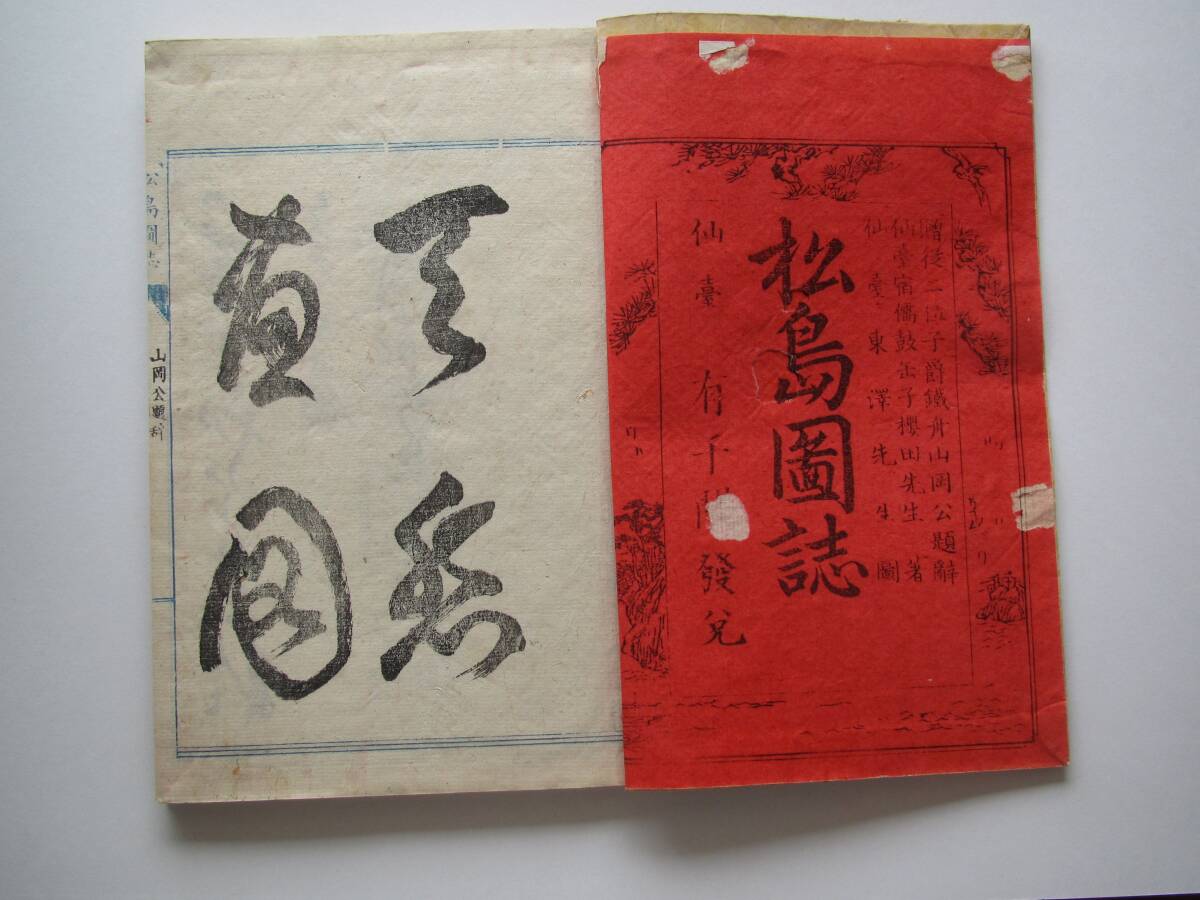 贈從二位子爵鐵舟山岡公題辭
仙臺宿儒鼓缶子櫻田先生著
仙臺東澤先生圖
松島圖誌
仙臺 有千 發兌
天然
畫圖
松島圖誌
山岡公題辞